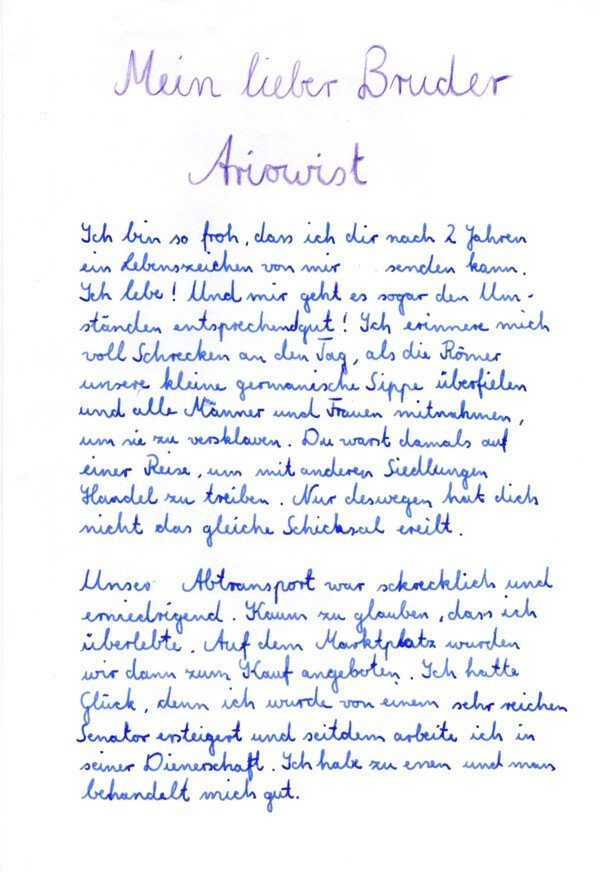 Mein lieber Bruder
Ariowist
Ich bin so froh, dass ich dir nach 2 Jahren
ein Lebenszeichen von mir senden kann.
Ich lebe! Und mir geht es sogar den Um-
ständen entsprechendgut! Ich erinnere mich
voll Schrecken an den Tag, als die Römer
unsere kleine germanische Sippe überfielen
und alle Männer und Frauen mitnahmen,
um sie zu versklaven. Du warst damals auf
einer Reise, um mit anderen Siedlungen
Handel zu treiben. Nur deswegen hat dich
nicht das gleiche Schicksal ereilt.
Unser Abtransport war schrecklich und
erniedrigend. Kaum zu glauben, dass ich
überlebte. Auf dem Marktplatz wurden
wir dann zum Kauf angeboten. Ich hatte
Glück, denn ich wurde von einem sehr reichen
Senator ersteigert und seitdem arbeite ich in
seiner Dienerschaft. Ich habe zu essen und man
behandelt mich gut.